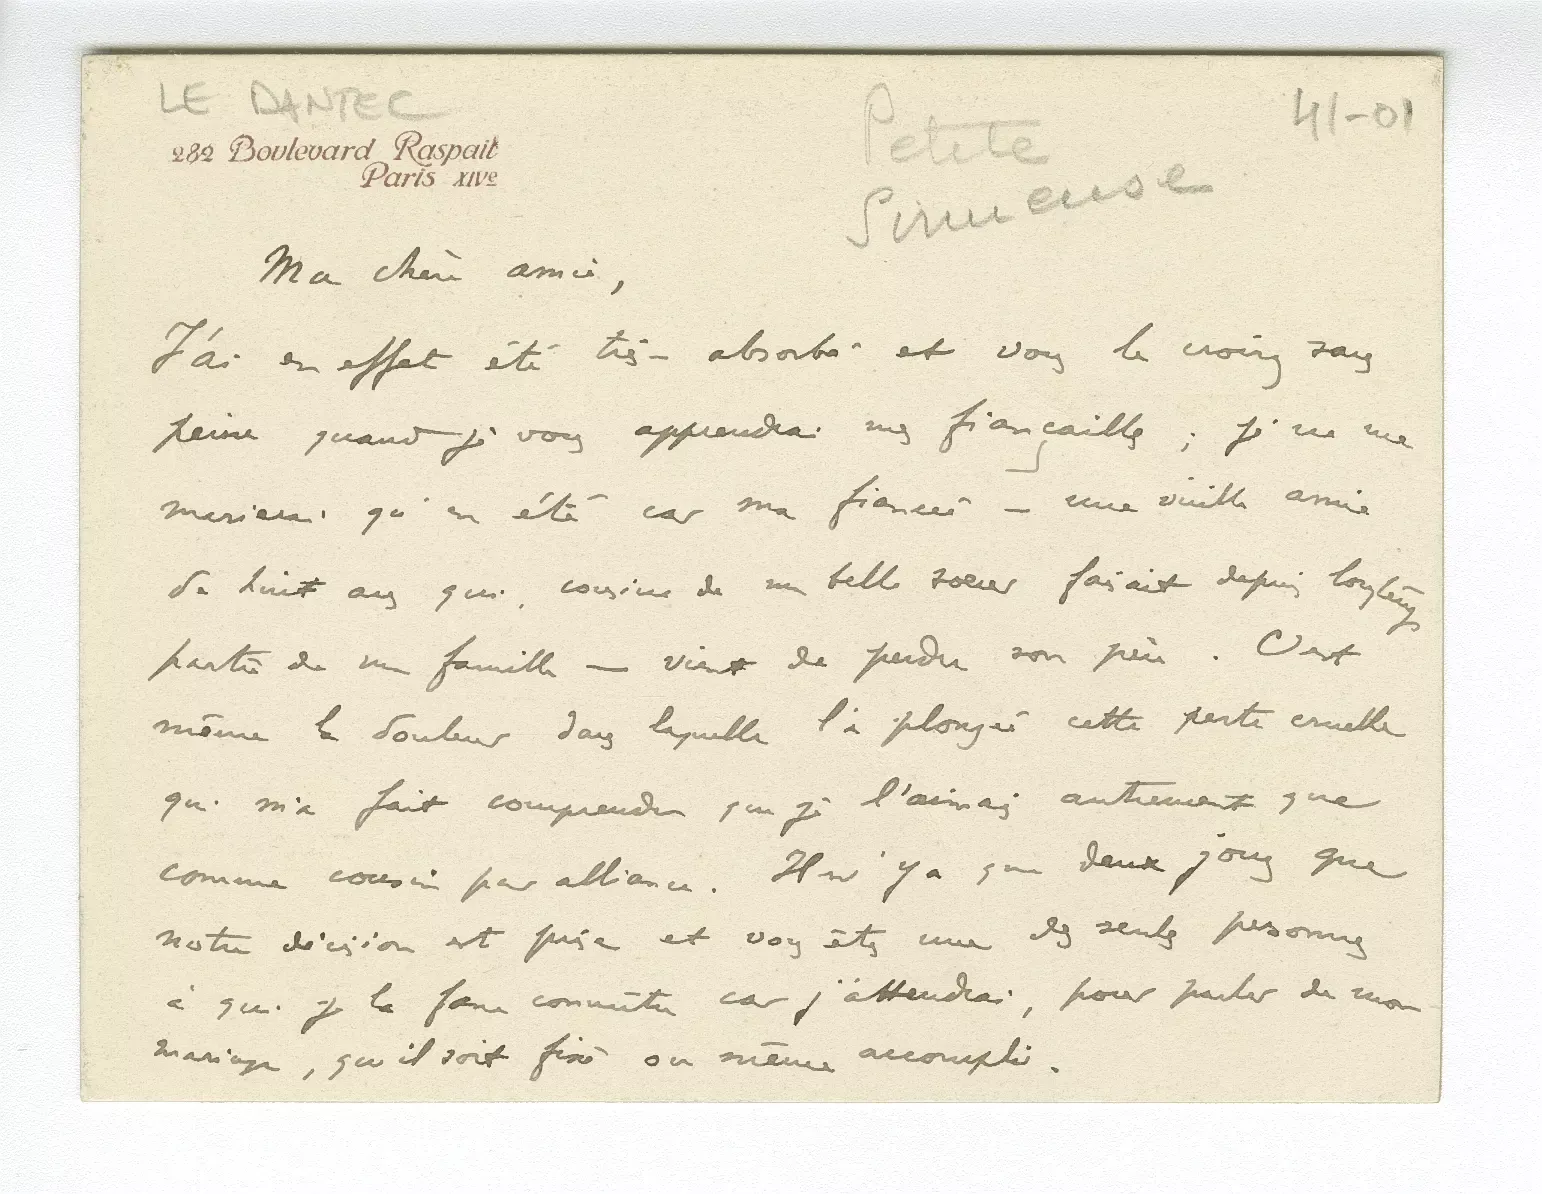 LE DANTEC
282 Boulevard Raspail
Paris XIVe
Petite
Simeuse
41-01
Ma chère amie,
J'ai en effet été très absorbé et vous le croirez sans
peine quand je vous apprendrai mes fiançailles ; je ne me
marierai qu'en été car ma fiancée — une vieille amie
de huit ans qui, cousine de ma belle soeur faisait depuis longtemps
partie de ma famille — vient de perdre son père. C'est
même la douleur dans laquelle l'a plongée cette perte cruelle
qui m'a fait comprendre que je l'aimais autrement que
comme cousin par alliance. Il n'y a que deux jours que
notre décision est prise et vous êtes une des seules personnes
à qui je la fasse connaître car j'attendrai, pour parler de mon
mariage, qu'il soit fixé ou même accompli.